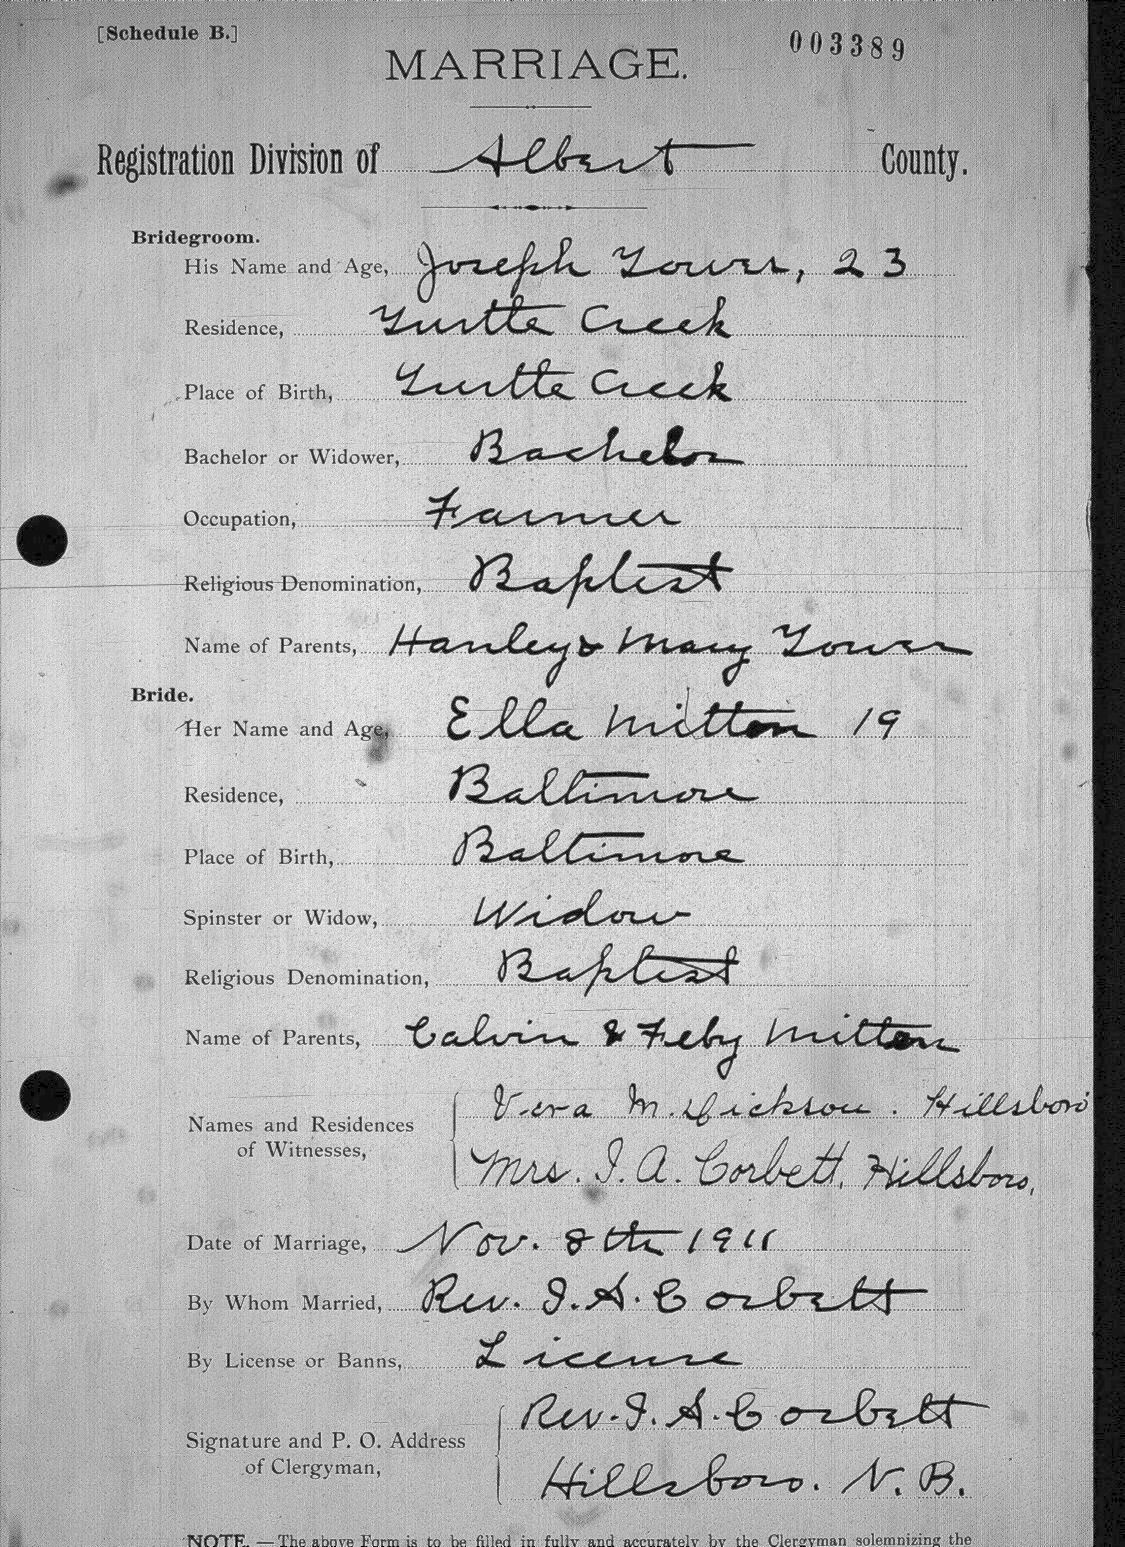 [Schedule B.]
003389
MARRIAGE.
Registration Division of Albert County.
Bridegroom.
His Name and Age, Joseph Tower, 23
Residence, Turtle Creek
Place of Birth, Turtle Creek
Bachelor or Widower, Bachelor
Occupation, Farmer
Religious Denomination, Baptist
Name of Parents, Hanley & Mary Tower
Bride.
Her Name and Age, Ella Mitton 19
Residence, Baltimore
Place of Birth, Baltimore
Spinster or Widow, Widow
Religious Denomination, Baptist
Name of Parents, Calvin & Feby Mitton
Names and Residences of Witnesses,
Vera M. Dickson. Hillsboro
Mrs. I. A. Corbett, Hillsboro,
Date of Marriage, Nov. 8th 1911
By Whom Married, Rev. I. A. Corbett
By License or Banns, License
Signature and P. O. Address of Clergyman,
Rev. I. A. Corbett
Hillsboro. N. B.
NOTE. — The above Form is to be filled in fully and accurately by the Clergyman solemnizing the